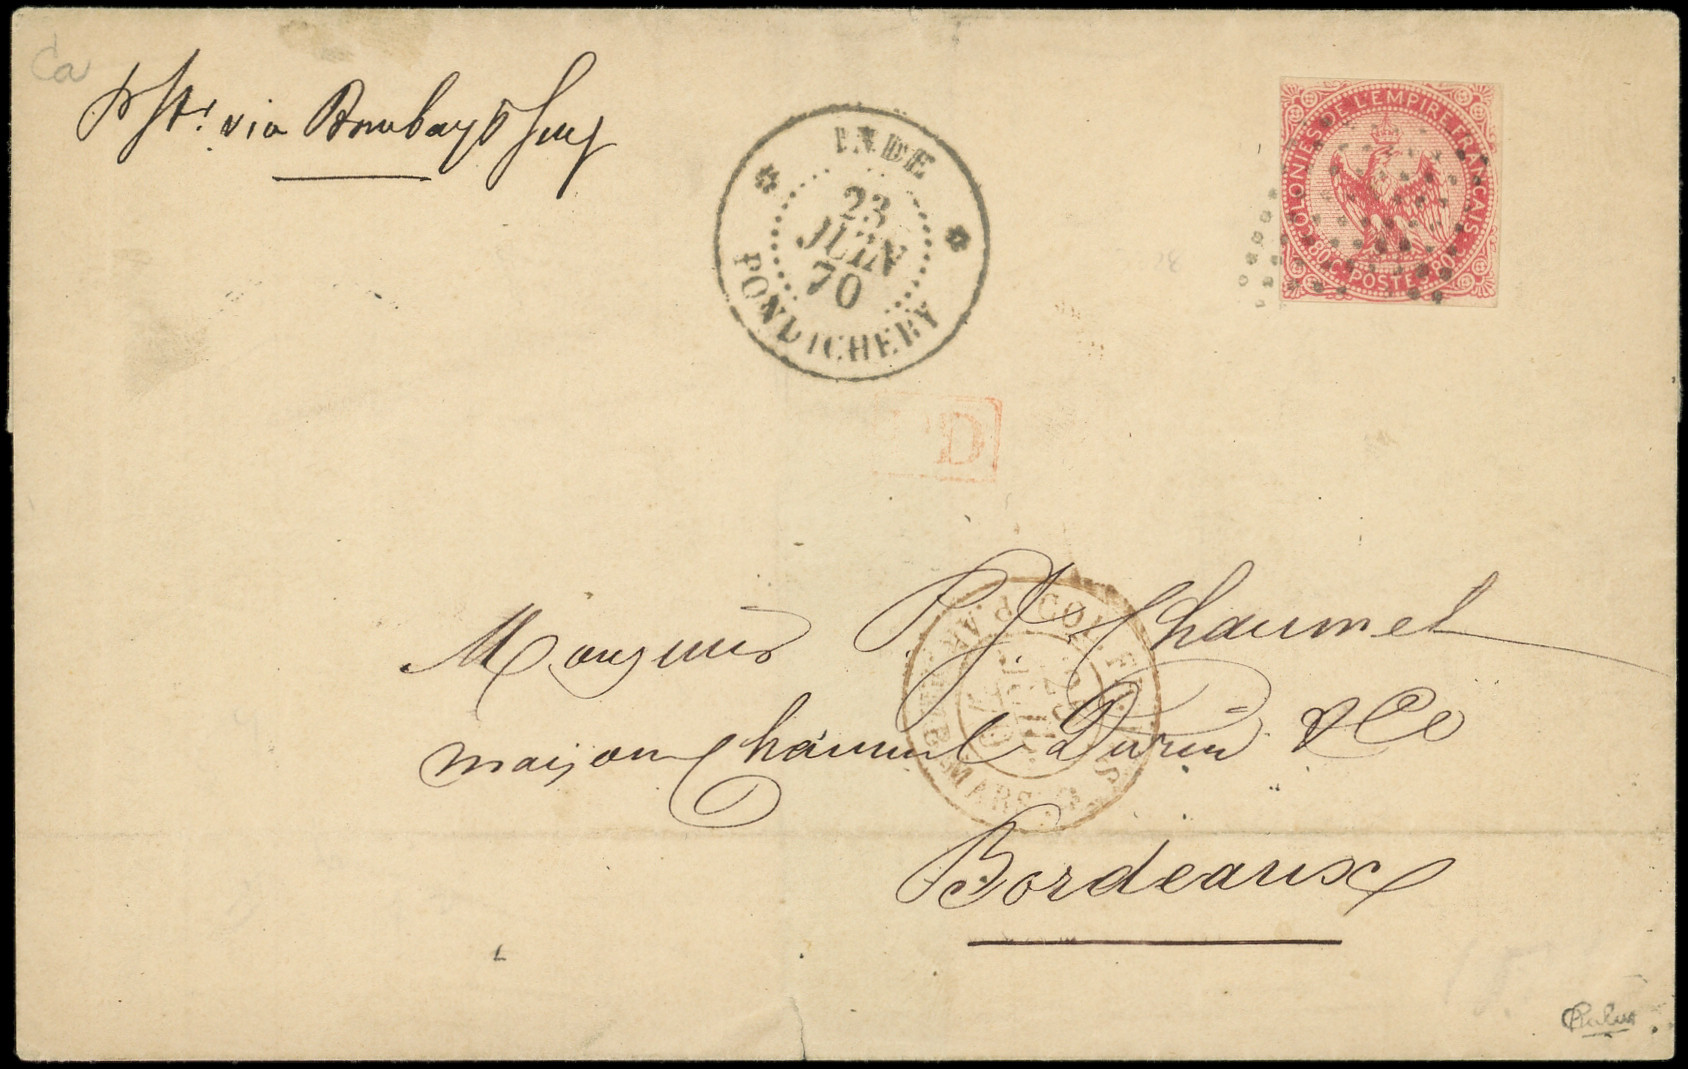 Ca
p. Str. via Bombay & Suez
INDE
23
JUIN
70
PONDICHERY
COLONIES DE L'EMPIRE FRANÇAIS
80C POSTES 80C
PD
COL. FR.
PAR MARS
Monsieur P. J. Chaumel
maison Chaumel Durin & Co
Bordeaux
Calves